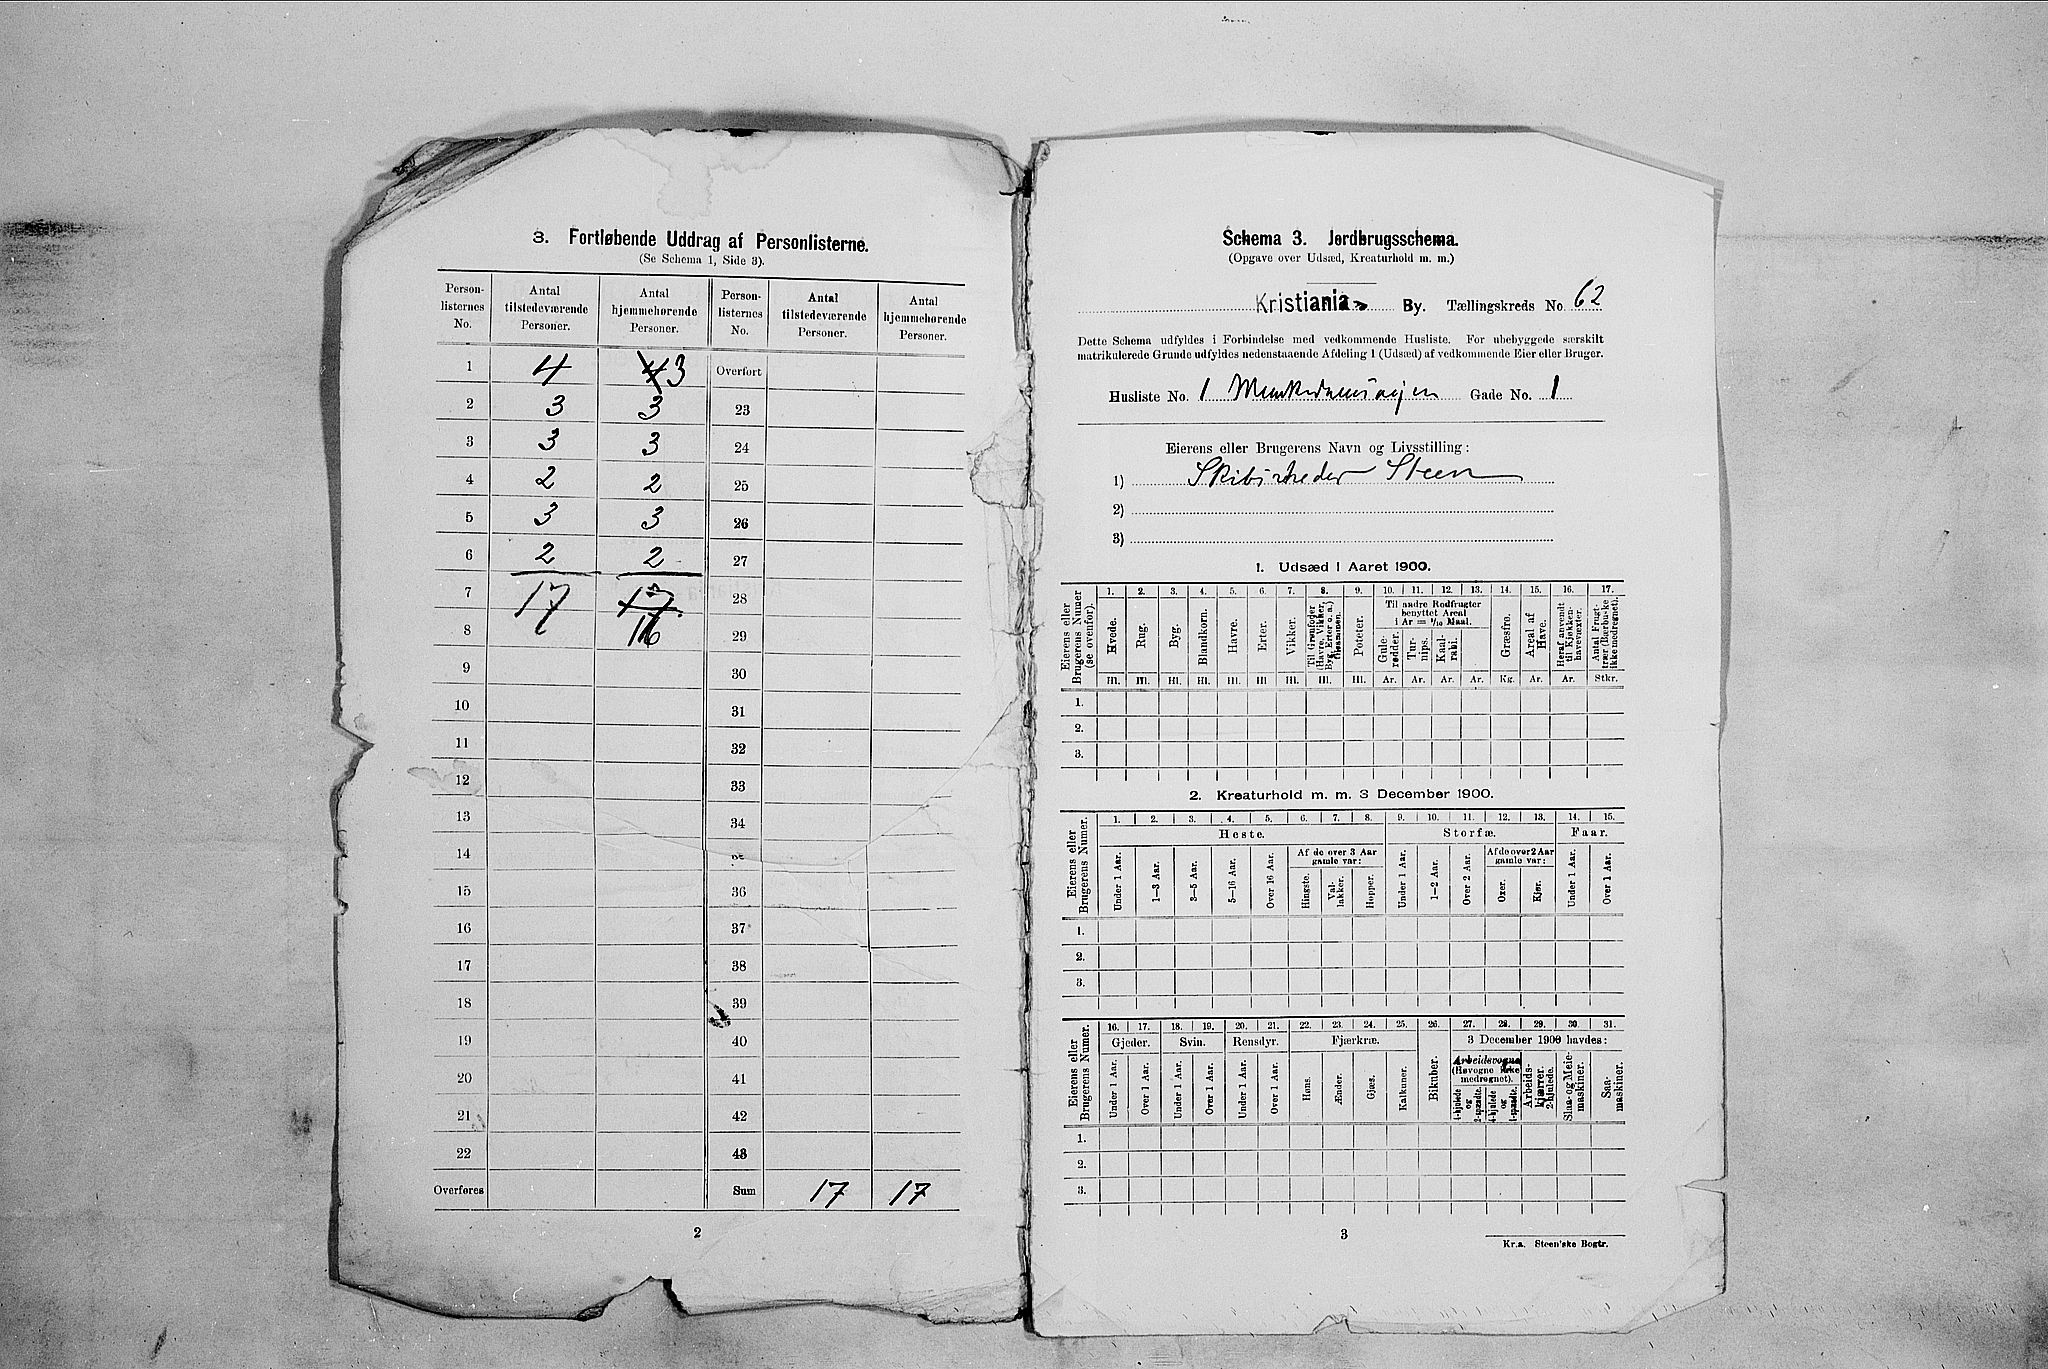 3. Fortløbende Uddrag af Personlisterne.
(Se Schema 1, Side 3).
Person-listernes No. | Antal tilstedeværende Personer. | Antal hjemmehørende Personer. | Person-listernes No. | Antal tilstedeværende Personer. | Antal hjemmehørende Personer.
1 4 4 3 Overført
2 3 3 23
3 3 3 24
4 2 2 25
5 3 3 26
6 2 2 27
7 17 17 28
8 16 29
9 30
10 31
11 32
12 33
13 34
14
15 36
16 37
17 38
18 39
19 40
20 41
21 42
22 43
Overføres Sum 17 17
2
Schema 3. Jordbrugsschema.
(Opgave over Udsæd, Kreaturhold m. m.)
Kristiania By. Tællingskreds No. 62
Dette Schema udfyldes i Forbindelse med vedkommende Husliste. For ubebyggede særskilt
matrikulerede Grunde udfyldes nedenstaaende Afdeling 1 (Udsæd) af vedkommende Eier eller Bruger.
Husliste No. 1 Munkedamsveien Gade No. 1
Eierens eller Brugerens Navn og Livsstilling:
1) Skibsreder Steen
2)
3)
1. Udsæd i Aaret 1900.
Eierens eller Brugerens Numer (se ovenfor).
1. 2. 3. 4. 5. 6. 7. 8. 9. 10. 11. 12. 13. 14. 15. 16. 17.
Til andre Rodfrugter benyttet Areal i Ar = 1/10 Maal.
Hvede. Rug. Byg. Blandkorn. Havre. Erter. Vikker. Til Grønfoder (Havre, Vikker, Byg, Erter o. a.) tilsammen. Poteter. Gule-rødder. Tur-nips. Kaal-rabi. Græsfrø. Areal af Have. Heraf anvendt til Kjøkken-havevæxter. Antal Frugt-trær (Bærbuske ikke medregnet).
Hl. Hl. Hl. Hl. Hl. Hl. Hl. Hl. Hl. Ar. Ar. Ar. Ar. Kg. Ar. Ar. Stkr.
1.
2.
3.
2. Kreaturhold m. m. 3 December 1900.
Eierens eller Brugerens Numer.
1. 2. 3. 4. 5. 6. 7. 8. 9. 10. 11. 12. 13. 14. 15.
Heste. Storfæ. Faar.
Af de over 3 Aar gamle var: Af de over 2 Aar gamle var:
Under 1 Aar. 1–3 Aar. 3–5 Aar. 5–16 Aar. Over 16 Aar. Hingste. Val-lakker. Hopper. Under 1 Aar. 1–2 Aar. Over 2 Aar. Oxer. Kjør. Under 1 Aar. Over 1 Aar.
1.
2.
3.
Eierens eller Brugerens Numer.
16. 17. 18. 19. 20. 21. 22. 23. 24. 25. 26. 27. 28. 29. 30. 31.
Gjeder. Svin. Rensdyr. Fjærkræ. 3 December 1900 havdes:
Arbeidsvogne (Høvogne ikke medregnet).
Under 1 Aar. Over 1 Aar. Under 1 Aar. Over 1 Aar. Under 1 Aar. Over 1 Aar. Høns. Ænder. Gjæs. Kalkuner. Bikuber. 4-hjulede og 2-spændte. 4-hjulede og 1-spændte. Arbeids-kjærrer, 2-hjulede. Slaa- og Meie-maskiner. Saa-maskiner.
1.
2.
3.
3
Kr.a. Steen'ske Bogtr.